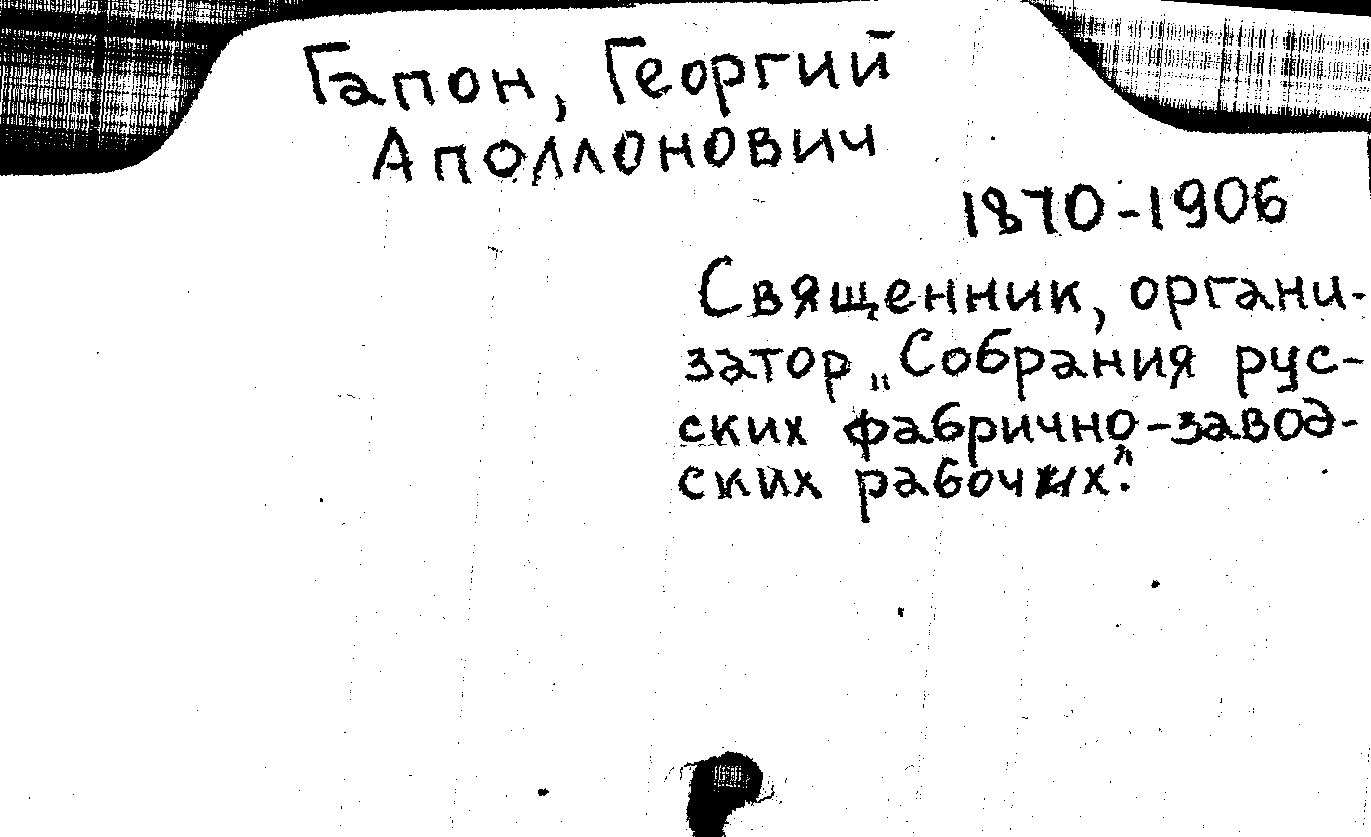 Гапон, Георгий
Аполлонович
1870-1906
Священник, органи-
затор „Собрания рус-
ских фабрично-завод-
ских рабочих".